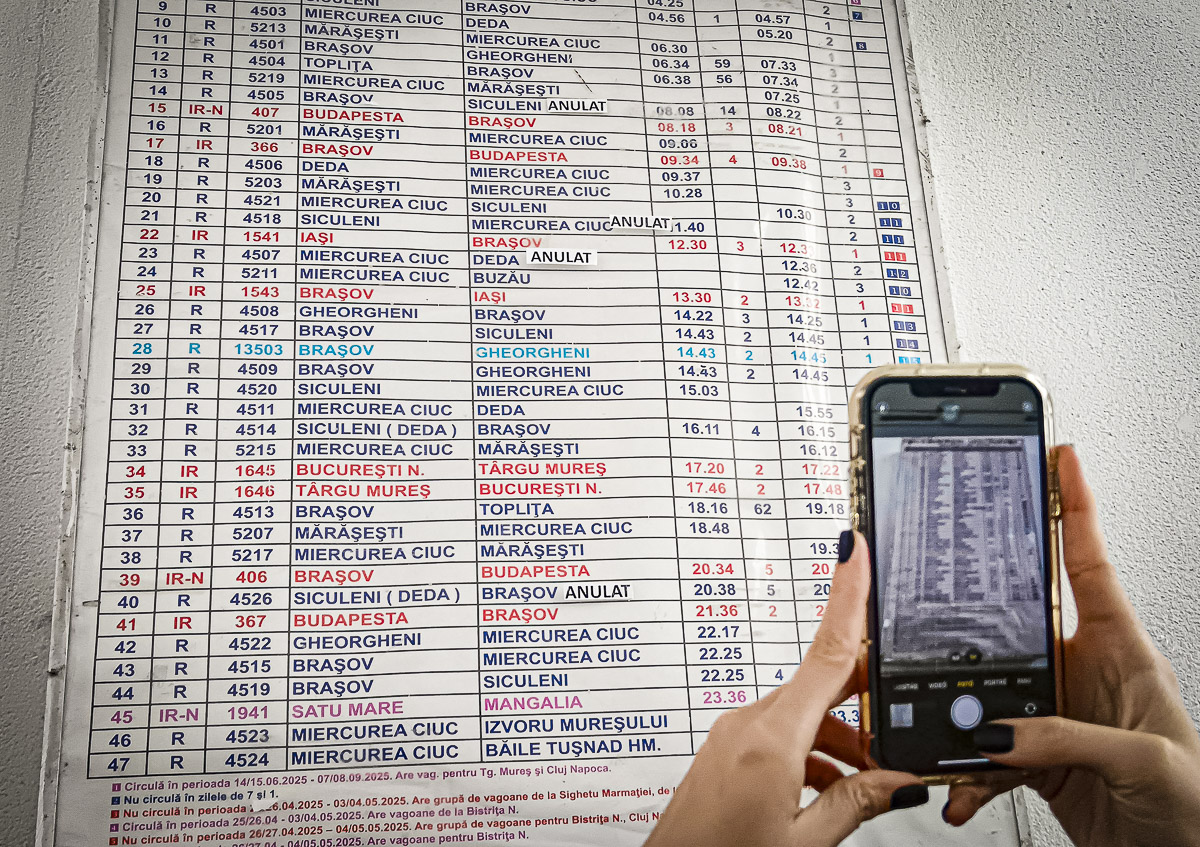 SICULENI 04.25 2
BRAŞOV 04.56 1 04.57 1
9 R 4503 MIERCUREA CIUC DEDA 05.20 2 8
10 R 5213 MĂRĂŞEŞTI MIERCUREA CIUC 06.30 1
11 R 4501 BRAŞOV GHEORGHENI 06.34 59 07.33 3
12 R 4504 TOPLIŢA BRAŞOV 06.38 56 07.34 2
13 R 5219 MIERCUREA CIUC MĂRĂŞEŞTI 07.25 1
14 R 4505 BRAŞOV SICULENI ANULAT 08.08 14 08.22 2
15 IR-N 407 BUDAPESTA BRAŞOV 08.18 3 08.21 1
16 R 5201 MĂRĂŞEŞTI MIERCUREA CIUC 09.06 2
17 IR 366 BRAŞOV BUDAPESTA 09.34 4 09.38 1 9
18 R 4506 DEDA MIERCUREA CIUC 09.37 3
19 R 5203 MĂRĂŞEŞTI MIERCUREA CIUC 10.28 3 10
20 R 4521 MIERCUREA CIUC SICULENI 10.30 2 11
21 R 4518 SICULENI MIERCUREA CIUC ANULAT 1.40 2 11
22 IR 1541 IAŞI BRAŞOV 12.30 3 12.3 1 11
23 R 4507 MIERCUREA CIUC DEDA ANULAT 12.36 2 12
24 R 5211 MIERCUREA CIUC BUZĂU 12.42 3 10
25 IR 1543 BRAŞOV IAŞI 13.30 2 13.32 1 11
26 R 4508 GHEORGHENI BRAŞOV 14.22 3 14.25 1 13
27 R 4517 BRAŞOV SICULENI 14.43 2 14.45 1 14
28 R 13503 BRAŞOV GHEORGHENI 14.43 2 14.45 1 15
29 R 4509 BRAŞOV GHEORGHENI 14.43 2 14.45
30 R 4520 SICULENI MIERCUREA CIUC 15.03
31 R 4511 MIERCUREA CIUC DEDA 15.55
32 R 4514 SICULENI ( DEDA ) BRAŞOV 16.11 4 16.15
33 R 5215 MIERCUREA CIUC MĂRĂŞEŞTI 16.12
34 IR 1645 BUCUREŞTI N. TÂRGU MUREŞ 17.20 2 17.22
35 IR 1646 TÂRGU MUREŞ BUCUREŞTI N. 17.46 2 17.48
36 R 4513 BRAŞOV TOPLIŢA 18.16 62 19.18
37 R 5207 MĂRĂŞEŞTI MIERCUREA CIUC 18.48
38 R 5217 MIERCUREA CIUC MĂRĂŞEŞTI 19.3
39 IR-N 406 BRAŞOV BUDAPESTA 20.34 5 20.
40 R 4526 SICULENI ( DEDA ) BRAŞOV ANULAT 20.38 5 20
41 IR 367 BUDAPESTA BRAŞOV 21.36 2 2
42 R 4522 GHEORGHENI MIERCUREA CIUC 22.17
43 R 4515 BRAŞOV MIERCUREA CIUC 22.25
44 R 4519 BRAŞOV SICULENI 22.25 4
45 IR-N 1941 SATU MARE MANGALIA 23.36
46 R 4523 MIERCUREA CIUC IZVORU MUREŞULUI
47 R 4524 MIERCUREA CIUC BĂILE TUŞNAD HM.
1 Circulă în perioada 14/15.06.2025 - 07/08.09.2025. Are vag. pentru Tg. Mureş şi Cluj Napoca.
2 Nu circulă în zilele de 7 şi 1.
3 Nu circulă în perioada 26.04.2025 - 03/04.05.2025. Are grupă de vagoane de la Sighetu Marmaţiei, de
4 Circulă în perioada 25/26.04 - 03/04.05.2025. Are vagoane de la Bistriţa N.
5 Nu circulă în perioada 26/27.04.2025 – 04/05.05.2025. Are grupă de vagoane pentru Bistriţa N., Cluj
26/27.04 - 04/05.05.2025. Are vagoane pentru Bistriţa N.
VIDEO FOTO PORTRET